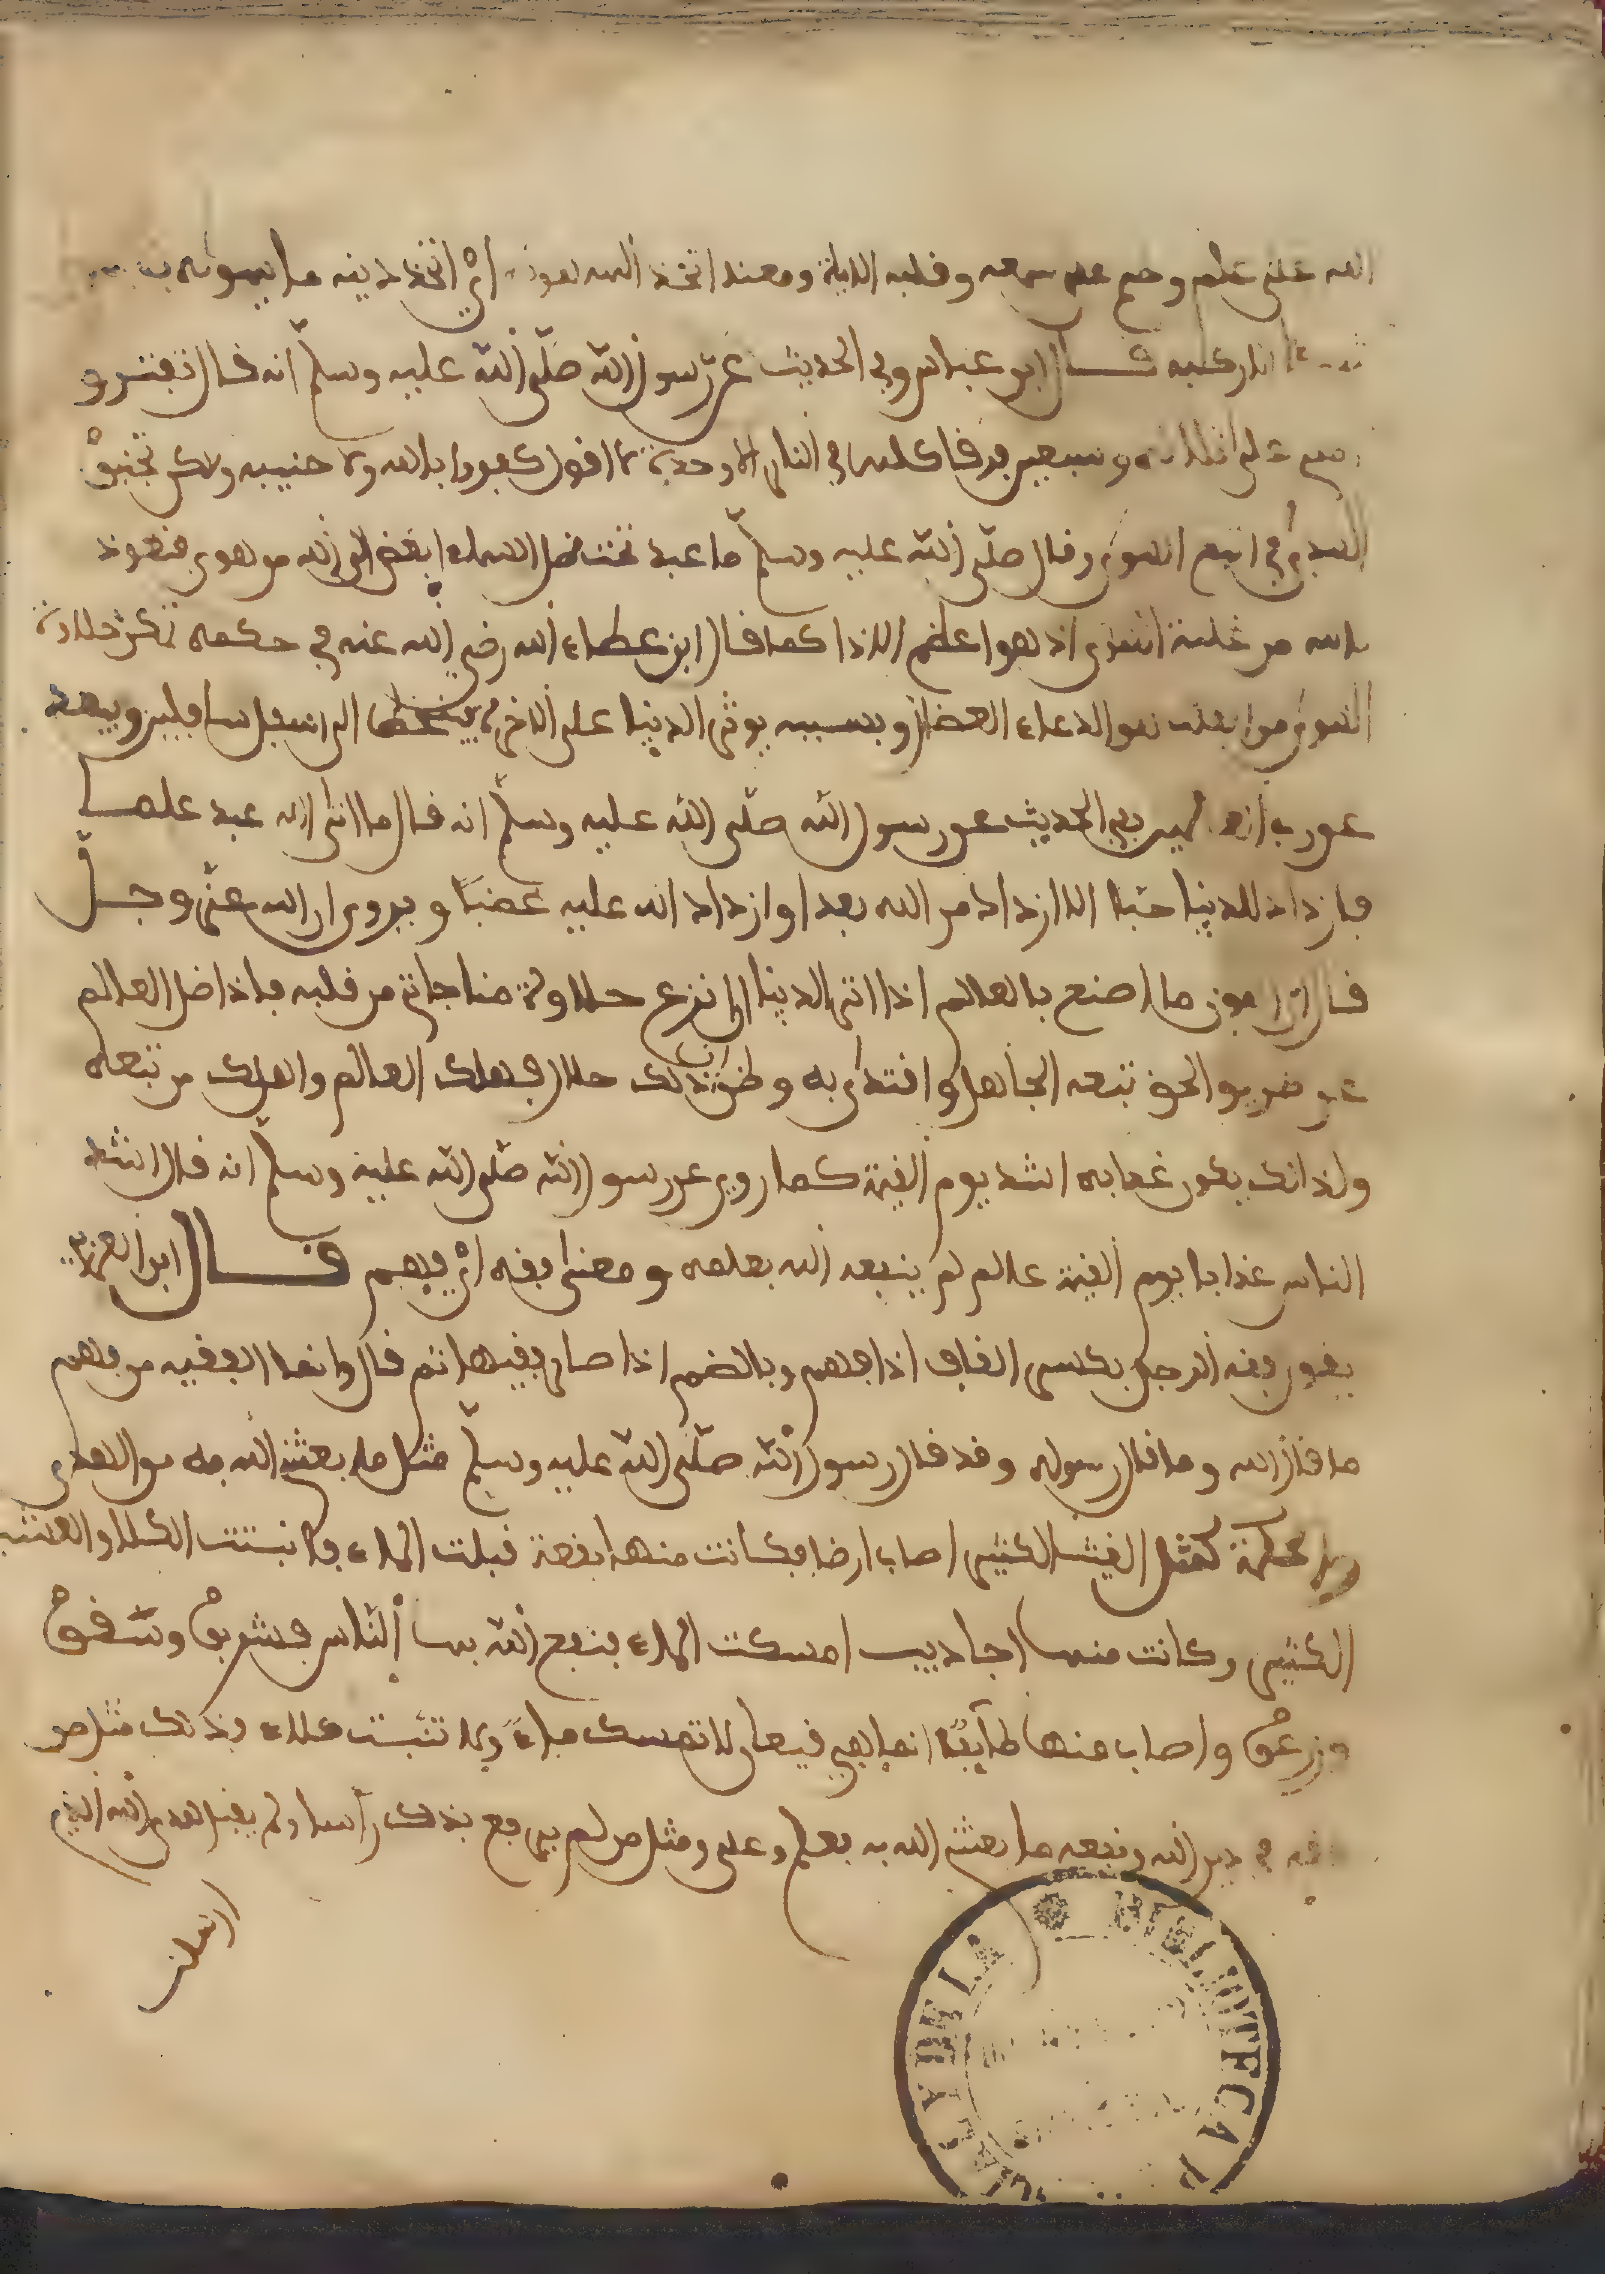 الله على علم وختم على سمعه وقلبه الاية ومعنى اتخذ الهه هويه اي اتخذ دينه ما يهويه
الا ركبه قال ابن عباس وفي الحديث عن رسول الله صلى الله عليه وسلم انه قال تفترق
امتي على ثلاثة وسبعين فرقا كلها في النار الا وحدة لا اقول كفورا بالله ولا ولكن تجنبوا
الهدى في اتبع الهوى وقال صلى الله عليه وسلم ما عبد تحت ظل السماء ابغض الى الله من هوى فنعوذ
بالله من غلبة الهوى اذ هو اعظم الاذا كما قال ابن عطاء الله رضي الله عنه في حكمه تمكن حلاوة
الهوى من القلب هو الداء العضال وبسببه يوثر الدنيا على الاخرى فينحط الى اسفل سافلين ويبعد
عن رب العلمين وفي الحديث عن رسول الله صلى الله عليه وسلم انه قال ما اتى الله عبد علما
فازداد للدنيا حبا الا ازداد من الله بعدا وازداد الله عليه غضبا ويروى ان الله عز وجل
قال ان اهون ما اصنع بالعالم اذا اثر الدنيا ان انزع حلاوة مناجاتي من قلبه فاذا ضل العالم
عن طريق الحق تبعه الجاهل واقتدى به وظن ان ذلك حلال فهلك العالم واهلك من تبعه
ولذلك يكون عذابه اشد يوم القيمة كما روي عن رسول الله صلى الله عليه وسلم انه قال اشد
الناس عذابا يوم القيمة عالم لم ينفعه الله بعلمه ومعنى فقه اي فهم قال ابن العربي
يقول فقه الرجل بكسر القاف اذا فهم وبالضم اذا صار فقيها ثم قال وانما الفقيه من فهم
ما قال الله وما قال رسوله وقد قال رسول الله صلى الله عليه وسلم مثل ما بعثني الله به من الهدى
والحكمة كمثل الغيث الكثير اصاب ارضا فكانت منها بقعة قبلت الماء فانبتت الكلا والعشب
الكثير وكانت منها اجاديب امسكت الماء فنفع الله بها الناس فشربوا وسقوا
وزرعوا واصاب منها طآيفة انما هي قيعان لا تمسك ماء ولا تنبت كلاء وذلك مثل من
فقه في دين الله ونفعه ما بعثني الله به فعلم وعلم ومثل من لم يرفع بذلك راسا ولم يقبل هدى الله الذي
ارسلت
BIBLIOTECA